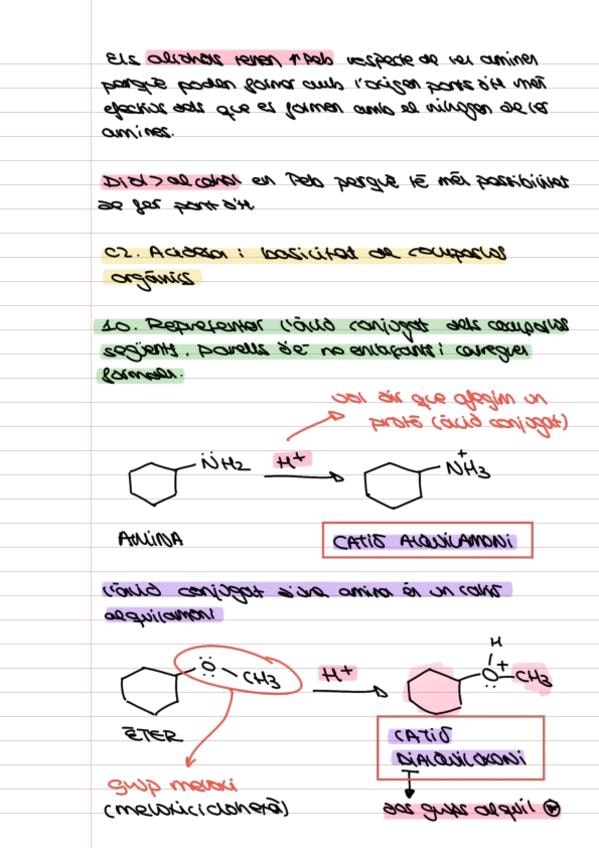 Els alcohols tenen ↑Peb respecte de les amines
perquè poden formar amb l'oxigen ponts d'H més
efectius dels que es formen amb el nitrogen de les
amines.
Diol > alcohol en Peb perquè té més possibilitat
de fer pont d'H.
C2. Acidesa i basicitat de compostos
orgànics
10. Representar l'àcid conjugat dels compostos
següents. Parells d'e⁻ no enllaçants i càrregues
formals.
vol dir que afegim un
protó (àcid conjugat)
NH2 H+ NH3 +
AMINA CATIÓ ALQUILAMONI
L'àcid conjugat d'una amina és un catió
alquilamoni
H
O CH3 H+ O+ CH3
ÈTER CATIÓ
DIALQUILOXONI
grup metoxi
(metoxiciclohexà) dos grups alquil